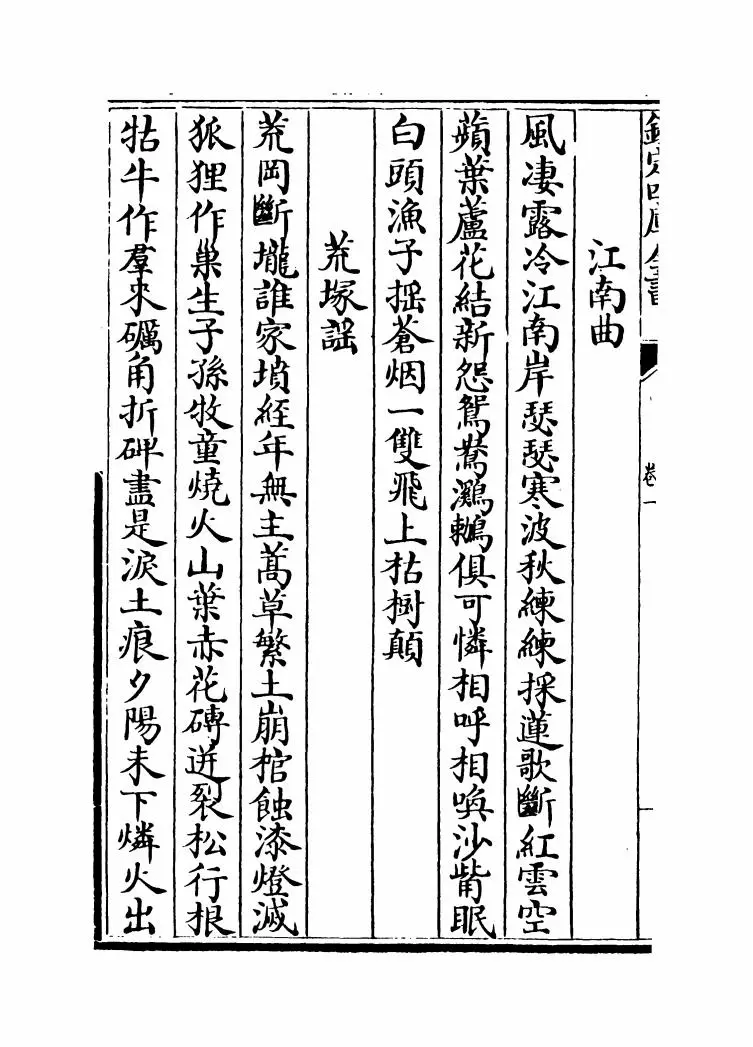 欽定四庫全書
卷一
江南曲
風凄露冷江南岸瑟瑟寒波秋練練採蓮歌斷紅雲空
蘋葉蘆花結新怨鴛鴦㶉鶒俱可憐相呼相喚沙觜眠
白頭漁子揺蒼烟一雙飛上枯樹顛
荒塚謡
荒岡斷壠誰家墳經年無主蒿草繁土崩棺蝕漆燈滅
狐狸作巢生子孫牧童燒火山葉赤花磚迸裂松行根
牯牛作羣來礪角折碑盡是淚土痕夕陽未下燐火出